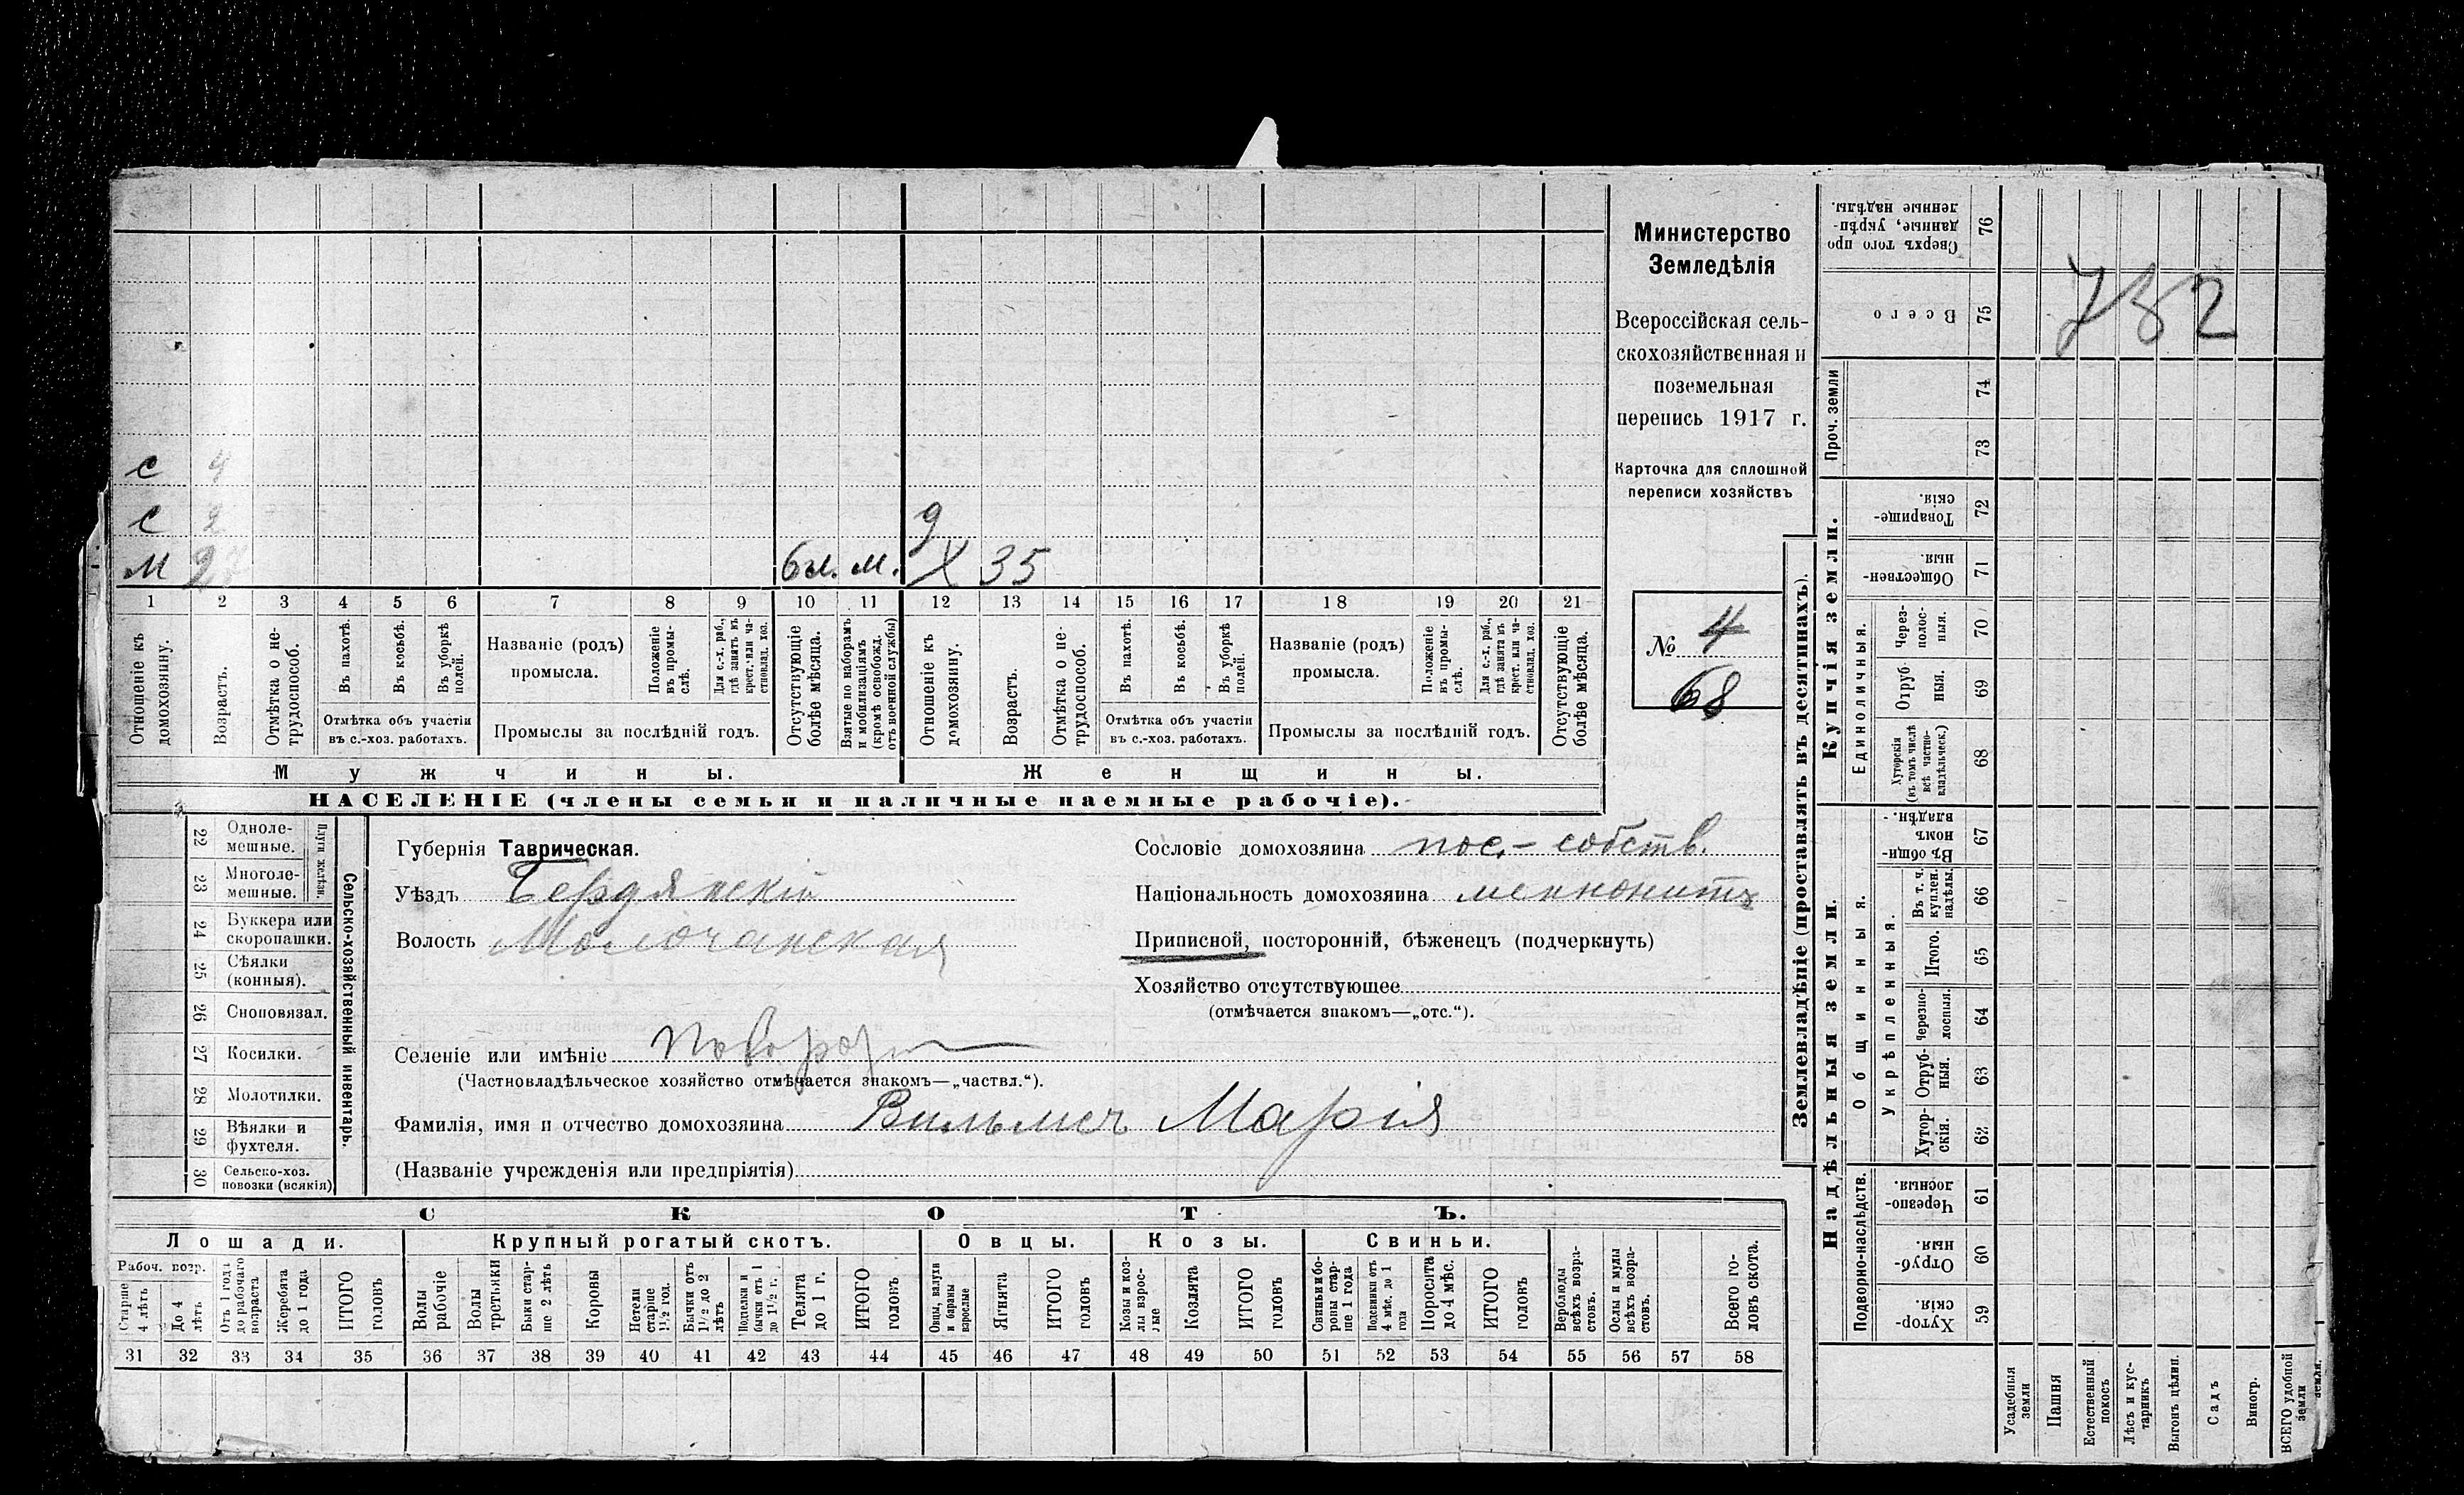 Министерство
Земледѣлія
Всероссійская сель-
скохозяйственная и
поземельная
перепись 1917 г.
Карточка для сплошной
переписи хозяйствъ
№ 4
68
732
с 4
с 2 д
м 27 бл. м. Х 35
1 2 3 4 5 6 7 8 9 10 11 12 13 14 15 16 17 18 19 20 21
Отношеніе къ домохозяину.
Возрастъ.
Отмѣтка о не-трудоспособ.
Въ пахотѣ.
Въ косьбѣ.
Въ уборкѣ полей.
Отмѣтка объ участіи
въ с.-хоз. работахъ.
Названіе (родъ)
промысла.
Положеніе въ промы-слѣ.
Для с.-х. раб., гдѣ занятъ въ крест. или ча-стновлад. хоз.
Промыслы за послѣдній годъ.
Отсутствующіе болѣе мѣсяца.
Взятые по наборамъ и мобилизаціямъ (кромѣ освобожд. отъ военной службы)
Отношеніе къ домохозяину.
Возрастъ.
Отмѣтка о не-трудоспособ.
Въ пахотѣ.
Въ косьбѣ.
Въ уборкѣ полей.
Отмѣтка объ участіи
въ с.-хоз. работахъ.
Названіе (родъ)
промысла.
Положеніе въ промы-слѣ.
Для с.-х. раб., гдѣ занята въ крест. или ча-стновлад. хоз.
Промыслы за послѣдній годъ.
Отсутствующіе болѣе мѣсяца.
Мужчины. Женщины.
НАСЕЛЕНІЕ (члены семьи и наличные наемные рабочіе).
Сельско-хозяйственный инвентарь.
Плуги желѣзн.
22 Одноле-
мешные.
23 Многоле-
мешные.
24 Буккера или
скоропашки.
25 Сѣялки
(конныя).
26 Сноповязал.
27 Косилки.
28 Молотилки.
29 Вѣялки и
фухтеля.
30 Сельско-хоз.
повозки (всякія)
Губернія Таврическая.
Уѣздъ Бердянскій
Волость Молочанская
Селеніе или имѣніе
(Частновладѣльческое хозяйство отмѣчается знакомъ—„частвл.“).
Фамилія, имя и отчество домохозяина Вильмсъ Марія
(Названіе учрежденія или предпріятія)
Сословіе домохозяина пос.- собств.
Національность домохозяина меннонитъ
Приписной, посторонній, бѣженецъ (подчеркнуть)
Хозяйство отсутствующее
(отмѣчается знакомъ—„отс.“).
СКОТЪ.
Лошади. Крупный рогатый скотъ. Овцы. Козы. Свиньи.
Рабоч. возр.
Старше 4 лѣтъ
До 4 лѣтъ
Отъ 1 года до рабочаго возраста
Жеребята до 1 года
ИТОГО головъ
Волы рабочіе
Волы третьяки
Быки стар-ше 2 лѣтъ
Коровы
Нетели старше 1½ год.
Бычки отъ 1½ до 2 лѣтъ
Подтелки и бычки отъ 1 до 1½ г.
Телята до 1 г.
ИТОГО головъ
Овцы, валухи и бараны взрослые
Ягнята
ИТОГО головъ
Козы и коз-лы взрос-лые
Козлята
ИТОГО головъ
Свиньи и бо-ровы стар-ше 1 года
Подсвинки отъ 4 мѣс. до 1 года
Поросята до 4 мѣс.
ИТОГО головъ
Верблюды всѣхъ возра-стовъ.
Ослы и мулы всѣхъ возра-стовъ.
Всего го-ловъ скота.
31 32 33 34 35 36 37 38 39 40 41 42 43 44 45 46 47 48 49 50 51 52 53 54 55 56 57 58
Землевладѣніе (проставлять въ десятинахъ).
Надѣльныя земли. Купчія земли. Проч. земли
Подворно-наслѣдств.
Общинныя.
Укрѣпленныя.
Единоличныя.
Сверхъ того про-данные, укрѣп-ленные надѣлы. 76
Всего 75
74
73
Товарище-скія. 72
Обществен-ныя. 71
Через-полос-ныя. 70
Отруб-ныя. 69
Хуторскія (въ томъ числѣ всѣ частно-владѣльческ.) 68
Въ общин-номъ владѣн. 67
Въ т. ч. куплен. надѣлы. 66
Итого. 65
Черезпо-лосныя. 64
Отруб-ныя. 63
Хутор-скія. 62
Черезпо-лосныя. 61
Отруб-ныя. 60
Хутор-скія. 59
Усадебныя земли
Пашня
Естественный покосъ
Лѣсъ и кус-тарникъ
Выгонъ цѣлин.
Садъ
Виногр.
ВСЕГО удобной земли